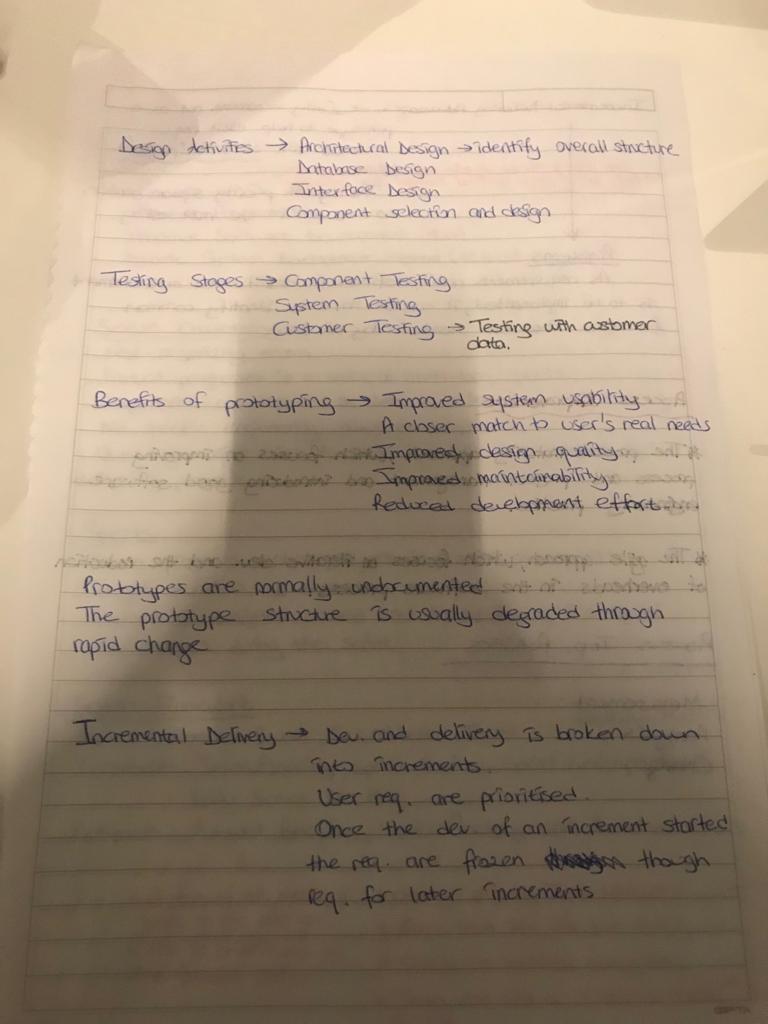 Design Activities → Architectural Design → identify overall structure
Database Design
Interface Design
Component selection and design
Testing Stages → Component Testing
System Testing
Customer Testing → Testing with customer
data.
Benefits of prototyping → Improved system usability
A closer match to user's real needs
Improved design quality
Improved maintainability
Reduced development effort.
Prototypes are normally undocumented
The prototype structure is usually degraded through
rapid change
Incremental Delivery → Dev. and delivery is broken down
into increments.
User req. are prioritised.
Once the dev. of an increment started
the req. are frozen though
req. for later increments